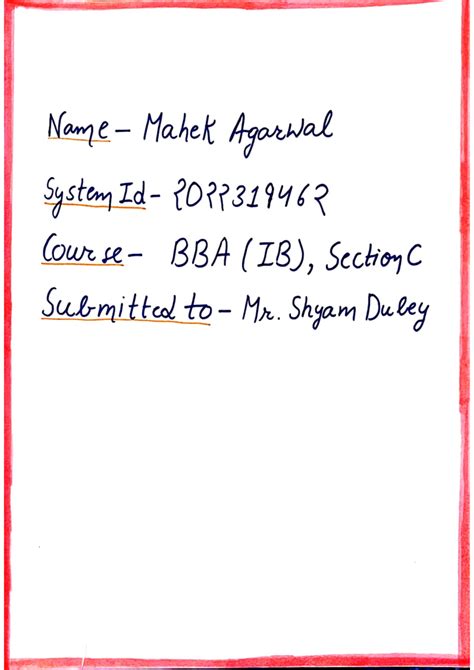 Name - Mahek Agarwal
System Id - 2022319462
Course - BBA (IB), Section C
Submitted to - Mr. Shyam Dubey